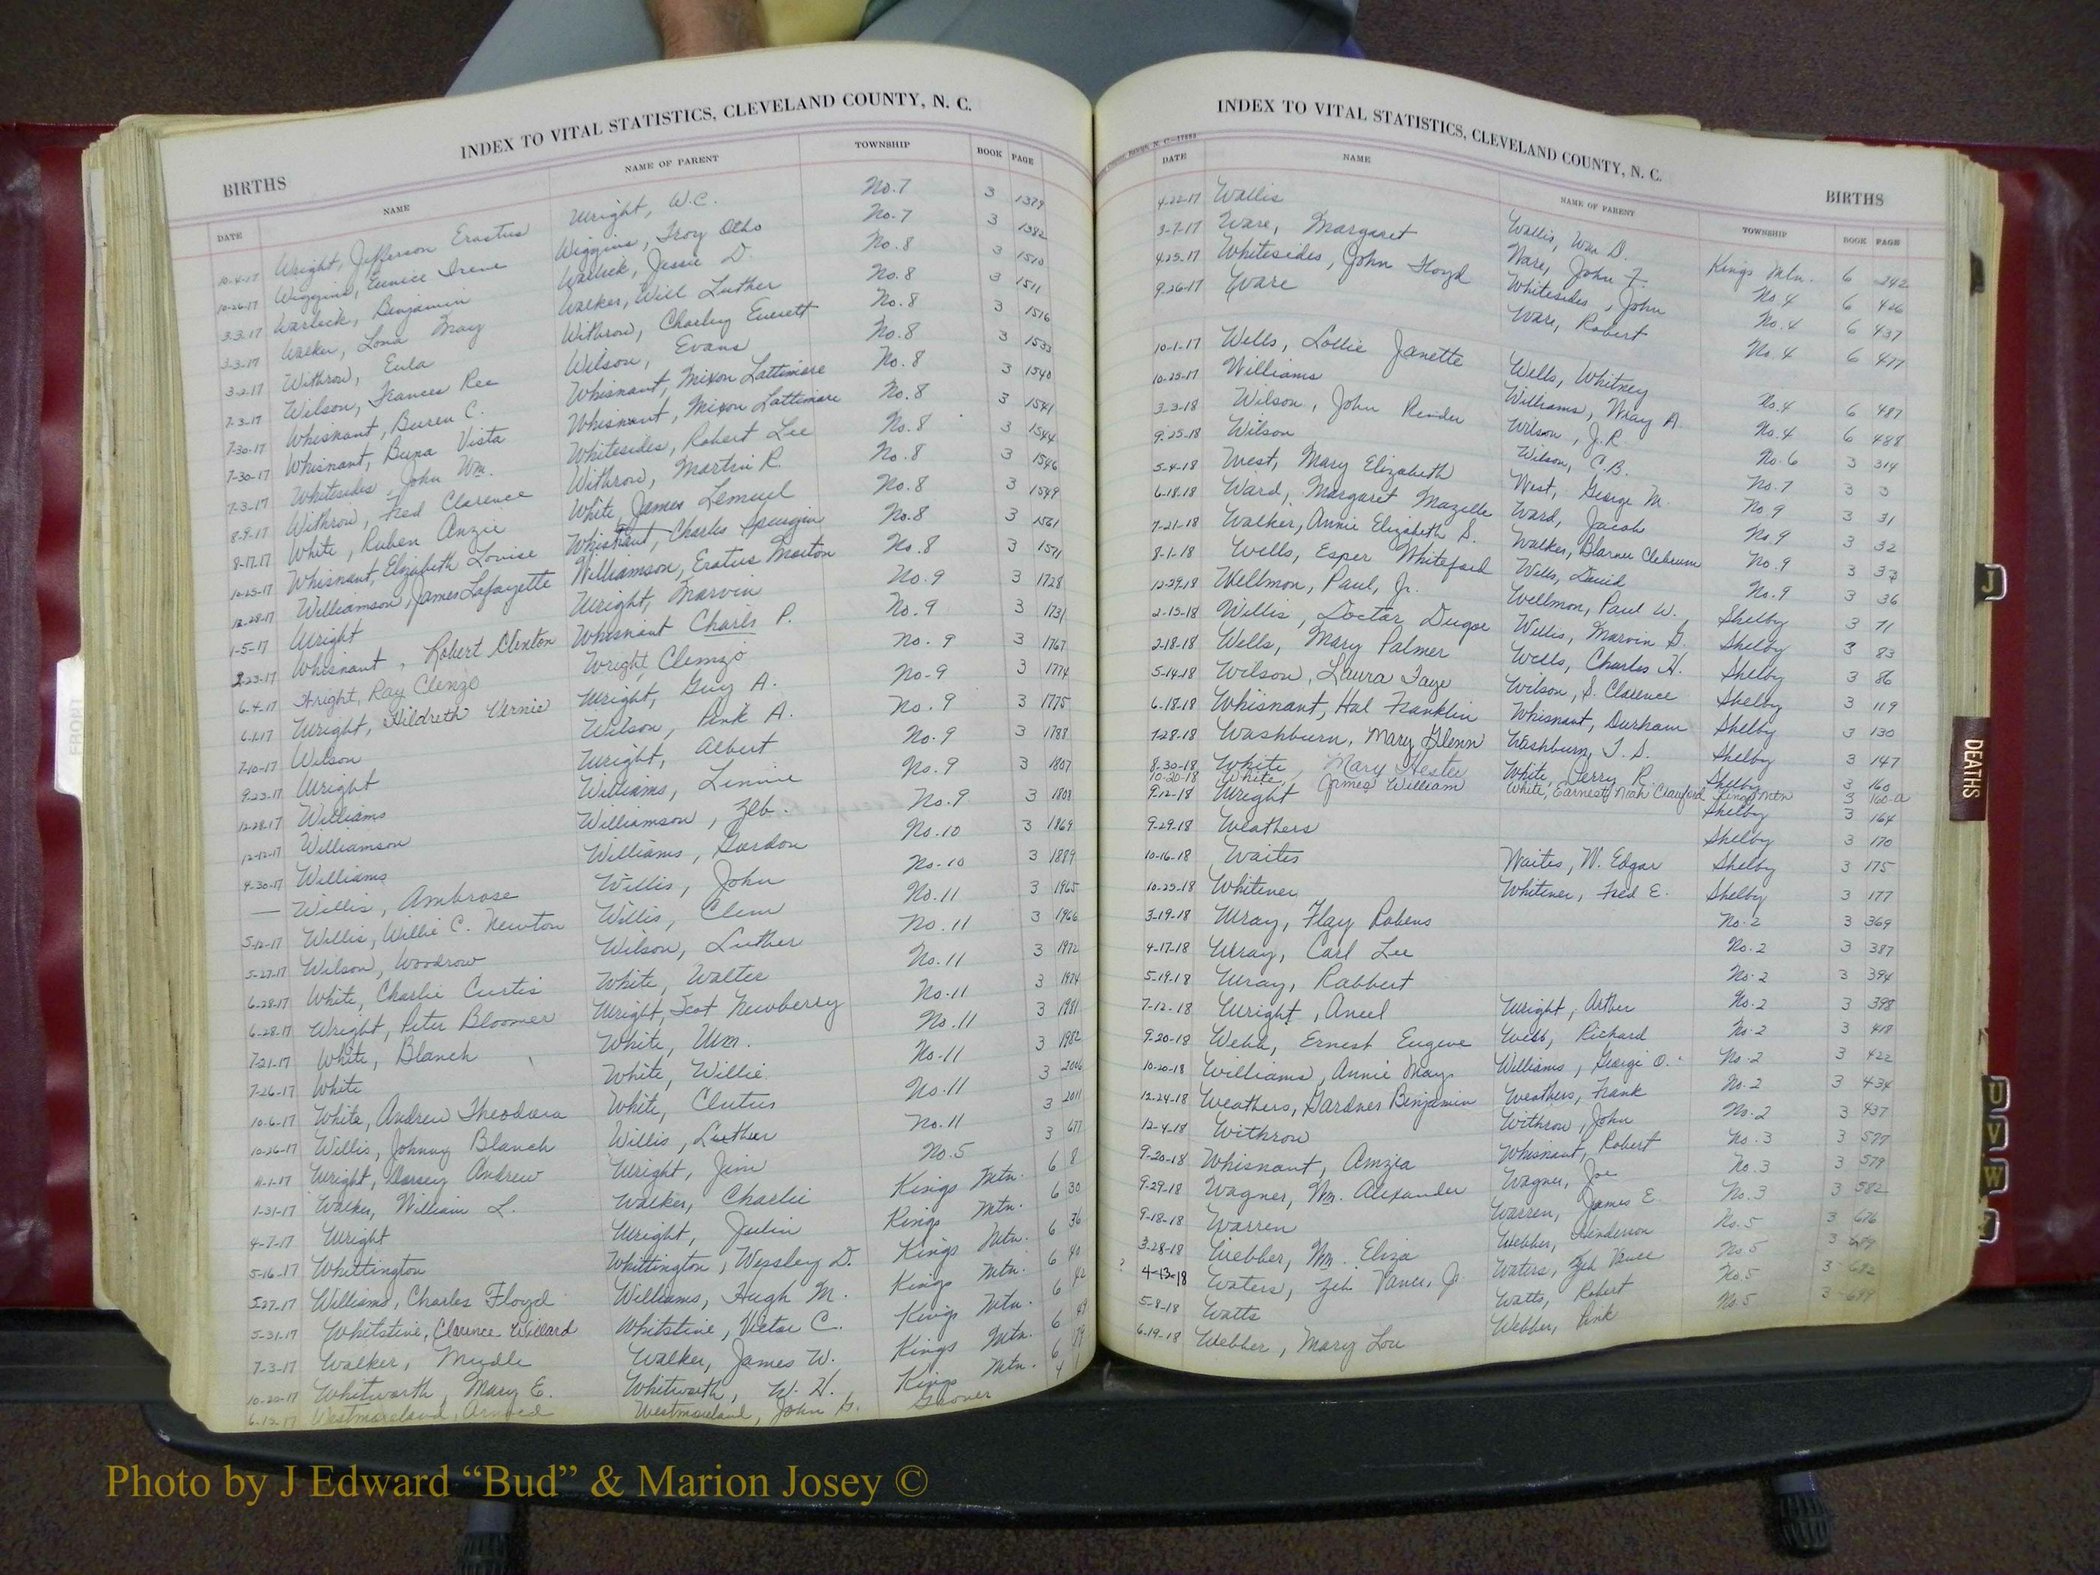 INDEX TO VITAL STATISTICS, CLEVELAND COUNTY, N. C.
BIRTHS
DATE NAME NAME OF PARENT TOWNSHIP BOOK PAGE
10-4-17 Wright, Jefferson Erastus Wright, W.C. No. 7 3 1379
10-26-17 Wiggins, Eunice Irene Wiggins, Troy Otho No. 7 3 1382
3-3-17 Warlick, Benjamin Warlick, Jessie D. No. 8 3 1510
3-3-17 Walker, Lona May Walker, Will Luther No. 8 3 1511
3-2-17 Withrow, Eula Withrow, Charley Everett No. 8 3 1516
7-3-17 Wilson, Frances Ree Wilson, Evans No. 8 3 1533
7-30-17 Whisnant, Buren C. Whisnant, Mixon Lattimore No. 8 3 1540
7-30-17 Whisnant, Buna Vista Whisnant, Mixon Lattimore No. 8 3 1541
7-3-17 Whitesides, John Wm. Whitesides, Robert Lee No. 8 3 1544
8-9-17 Withrow, Fred Clarence Withrow, Martin R. No. 8 3 1546
8-17-17 White, Ruben Anzie White, James Lemuel No. 8 3 1549
10-25-17 Whisnant, Elizabeth Louise Whisnant, Charles Spurgin No. 8 3 1561
12-28-17 Williamson, James Lafayette Williamson, Eratus Morton No. 8 3 1571
1-5-17 Wright Wright, Marvin No. 9 3 1728
2-23-17 Whisnant, Robert Clenton Whisnant Charls P. No. 9 3 1731
6-4-17 Wright, Ray Clenzo Wright, Clemzo No. 9 3 1767
6-1-17 Wright, Hildreth Vernie Wright, Guy A. No. 9 3 1774
7-10-17 Wilson Wilson, Pink A. No. 9 3 1775
9-23-17 Wright Wright, Albert No. 9 3 1788
12-28-17 Williams Williams, Linnie No. 9 3 1807
12-12-17 Williamson Williamson, Zeb. No. 9 3 1808
4-30-17 Williams Williams, Gordon No. 10 3 1869
— Willis, Ambrose Willis, John No. 10 3 1889
5-12-17 Willis, Willie C. Newton Willis, Clem No. 11 3 1965
5-27-17 Wilson, Woodrow Wilson, Luther No. 11 3 1966
6-28-17 White, Charlie Curtis White, Walter No. 11 3 1972
6-28-17 Wright, Peter Bloomer Wright, Scot Newberry No. 11 3 1974
7-21-17 White, Blanch White, Wm. No. 11 3 1981
7-26-17 White White, Willie No. 11 3 1982
10-6-17 White, Andrew Theodora White, Clutus No. 11 3 2006
10-26-17 Willis, Johnny Blanch Willis, Luther No. 11 3 2011
Wright, Dorsey Andrew Wright, Jim No. 5 3 677
1-31-17 Walker, William L. Walker, Charlie Kings Mtn. 6 8
4-7-17 Wright Wright, Julin Kings Mtn. 6 30
5-16-17 Whittington Whittington, Wessley D. Kings Mtn. 6 36
5-27-17 Williams, Charles Floyd Williams, Hugh M. Kings Mtn. 6 40
5-31-17 Whitstine, Clarence Willard Whitstine, Victor C. Kings Mtn. 6 42
7-3-17 Walker, Mudle Walker, James W. Kings Mtn. 6
10-20-17 Whitworth, Mary E. Whitworth, W. H. Kings Mtn. 6
6-12-17 Westmoreland, Westmoreland, John G. Grover
INDEX TO VITAL STATISTICS, CLEVELAND COUNTY, N. C.
BIRTHS
DATE NAME NAME OF PARENT TOWNSHIP BOOK PAGE
4-22-17 Wallis Wallis, Wm. D. Kings Mtn. 6 242
3-7-17 Ware, Margaret Ware, John F. No. 4 6 426
4-25-17 Whitesides, John Floyd Whitesides, John No. 4 6 437
9-26-17 Ware Ware, Robert No. 4 6 477
10-1-17 Wells, Lollie Janette Wells, Whitney No. 4 6 487
10-25-17 Williams Williams, Wray A. No. 4 6 488
3-3-18 Wilson, John Render Wilson, J. R. No. 6 3 314
9-25-18 Wilson Wilson, C. B. No. 7 3 3
5-4-18 West, Mary Elizabeth West, George M. No 9 3 31
6-18-18 Ward, Margaret Mazelle Ward, Jacob No 9 3 32
7-21-18 Walker, Annie Elizabeth S. Walker, Blarner Cleburn No. 9 3 33
8-1-18 Wells, Esper Whiteford Wells, David No. 9 3 36
12-29-18 Wellmon, Paul, Jr. Wellmon, Paul W. Shelby 3 71
2-15-18 Willis, Doctor Dugar Willis, Marvin G. Shelby 3 83
2-18-18 Wells, Mary Palmer Wells, Charles H. Shelby 3 86
5-14-18 Wilson, Laura Faye Wilson, S. Clarence Shelby 3 119
6-18-18 Whisnant, Hal Franklin Whisnant, Durham Shelby 3 130
7-28-18 Washburn, Mary Glenn Washburn, T. S. Shelby 3 147
8-30-18 White Mary Hester White, Perry R. Shelby 3 160
10-20-18 White, James William White, Earnest Noah Clawford Kings Mtn 3 160-a
9-12-18 Wright Shelby 3 164
9-29-18 Weathers Shelby 3 170
10-16-18 Waites Waites, W. Edgar Shelby 3 175
10-25-18 Whitener Whitener, Fred E. Shelby 3 177
3-19-18 Wray, Flay Robens No. 2 3 369
4-17-18 Wray, Carl Lee No. 2 3 387
5-19-18 Wray, Rabbert No. 2 3 394
7-12-18 Wright, Ancel Wright, Arther No. 2 3 398
9-20-18 Webb, Ernest Eugene Webb, Richard No. 2 3 418
10-20-18 Williams, Annie May Williams, George O. No. 2 3 422
12-24-18 Weathers, Gardner Benjamin Weathers, Frank No. 2 3 434
12-4-18 Withrow Withrow, John No. 2 3 437
9-20-18 Whisnant, Amzia Whisnant, Robert No. 3 3 577
9-29-18 Wagner, Wm. Alexander Wagner, Joe No. 3 3 579
9-18-18 Warren Warren, James E. No. 3 3 582
3-28-18 Webber, Wm. Eliza Webber, Henderson No. 5 3 676
? 4-13-18 Waters, Zeb Vance, Jr. Waters, Zeb Vance No. 5 3
5-8-18 Watts Watts, Robert No. 5 3 682
6-19-18 Webber, Mary Lou Webber, Pink No. 5 3
J
DEATHS
U
V
W
FRONT
Photo by J Edward “Bud” & Marion Josey ©